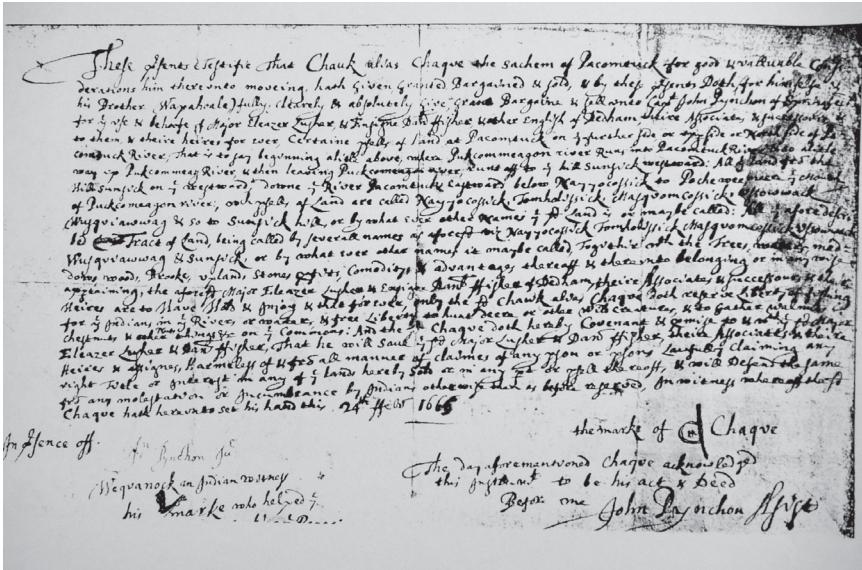 These psents Testifie That Chauk alias Chaque the sachem of Pacomtuck for good & valluable Consi
derations him thereunto moveing, hath Given Granted Bargained & sold, & by these psents Doth, for himselfe &
his Brother (Wapahoale) fully, Clearely & absolutely Give, Grant Bargaine & sell unto Capt John Pynchon of Springfeild
for yᵉ use & behoofe of Major Eleazer Lusher, & Ensigne Danll ffisher & other English of Dedham theire Associates & successors &
to them, & theire heires for ever, Certaine psells of land at Pacomtuck on yᵉ further side or North side of Pa
comtuck River, That is to say beginning a little above, where Puckcommeagon river Runs into Pacomtuck River & so a little
way up Puckcommeag River, & then leaving Puckcomeagon river, runs off to yᵉ hill Sunsick westward: All yᵉ land fro the
Hill Sunsick on yᵉ westward, downe yᵉ River Pacomtuck Eastward below Nayyocossick to Pochewee
of Puckcomeagon river; wch psells of Land are called Nayyocossick, Tomholissick, Masquomcossick, Ussowwack
Wusquiawwag & so to Sunsick hill, or by what ever other Names yᵉ sd land is or maybe called: All yᵉ afore descri
bd Tract of Land, being called by severall names as aforesd viz Nayyocossick Tomholissick Masquomcossick Ussowwack
Wusquiawwag & Sunsick or by what ever other names it maybe called, Together wth the Trees, waters, mea-
dows wood, Brooke, uplands, Stones pfits, Comoditys & advantages thereoff & thereunto belonging or in any wise
appertaining, the aforesd Major Eleazer Lusher & Ensigne Danll ffisher of Dedham, theire Associates & successours & their
Heires are to Have Hold & Injoy & that for ever, only the sd Chauk alias Chaque doth reserve Liberty of fishing
for yᵉ Indians in yᵉ Rivers or waters, & free Liberty to hunt deere or other wild creatures, & to Gather walnuts
chestnuts & other things &c on yᵉ Commons: And the sd Chaque doth hereby Covenant & pmise to & with yᵉ sd Major
Eleazer Lusher & Danll ffisher, That he will save yᵉ sd Major Lusher & Danll ffisher, theire Associates & theire
Heires & assignes, Harmeless of & fro all manner of claimes of any pson or psons Lawfully Claiming any
right Title or Interest in any of yᵉ lands hereby Sold or in any pt or psell thereoff, & will Defend the same
fro any molestation or Incumbrance by Indians otherwise than as before reserved, In witness whereof the sd
Chaque hath hereunto set his hand this 24th ffebr 1666
In psence off
Jn Pynchon Ju
Wequanock an Indian
his marke who helped yᵉ
the marke of Chaque
The day aforementioned Chaque acknowledgd
this Instrumt to be his act & Deed
Before me John Pynchon Assist